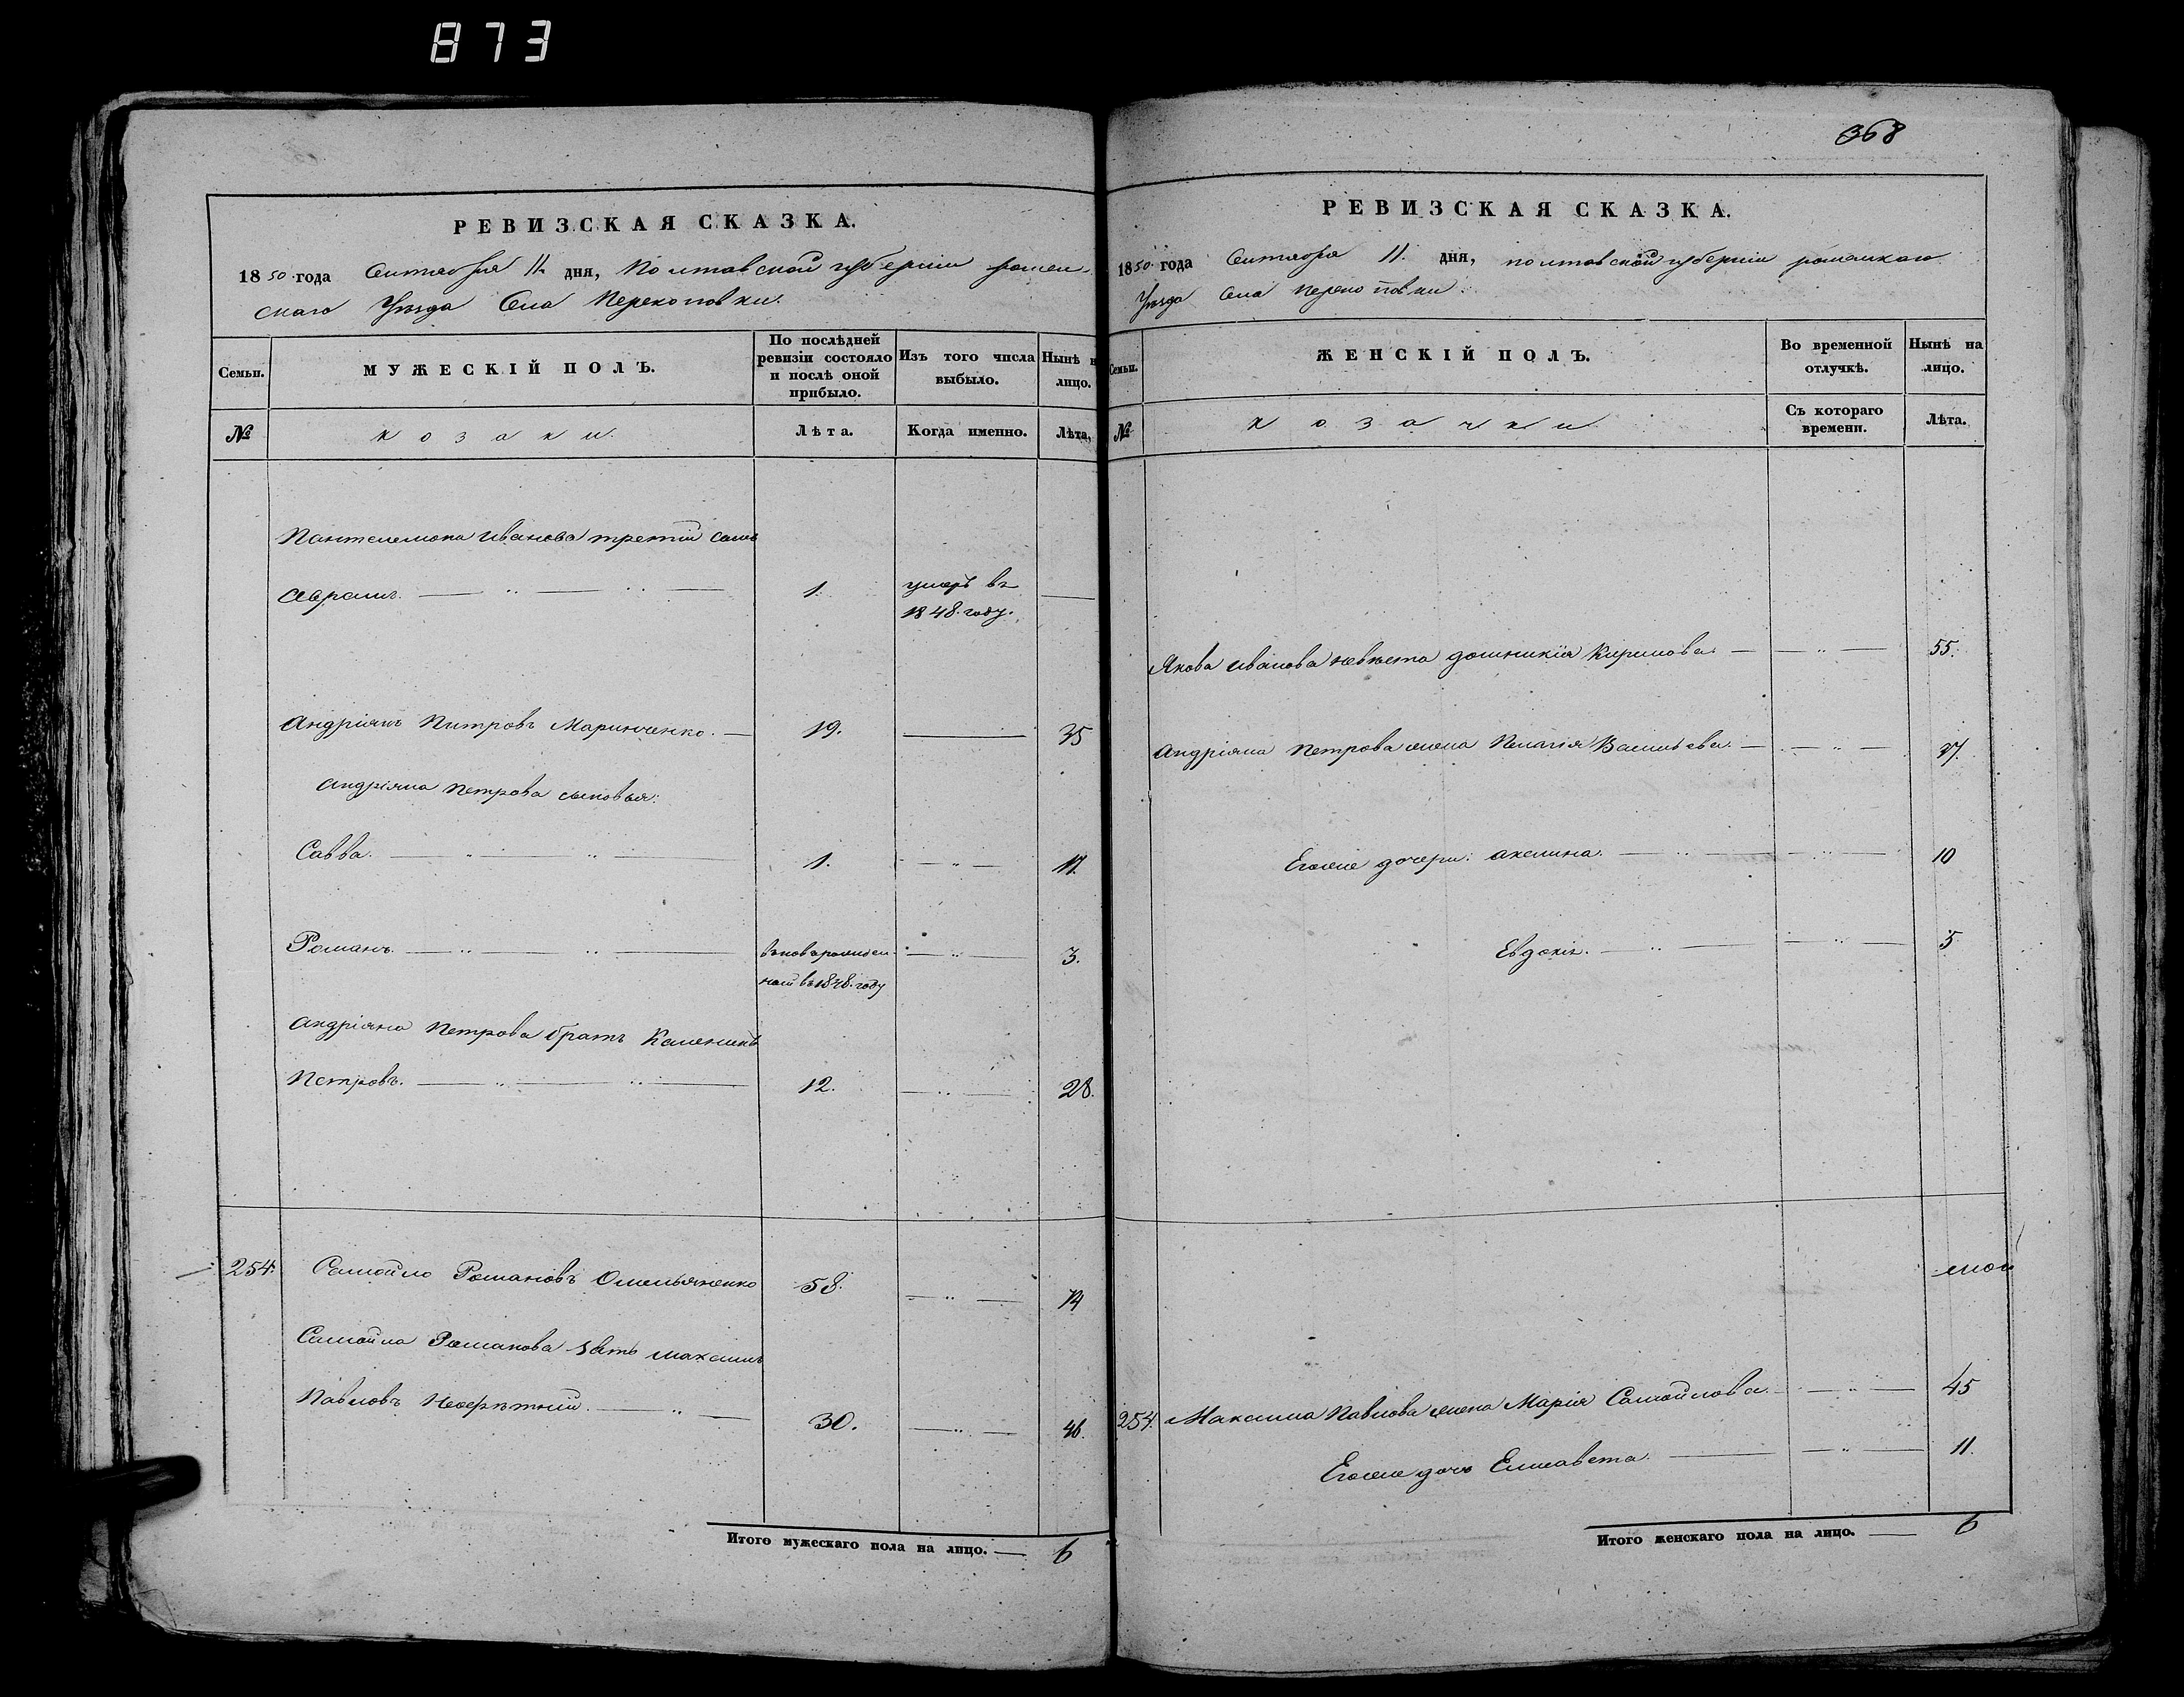 873
РЕВИЗСКАЯ СКАЗКА.
1850 года Сентября 11 дня, Полтавской губерніи ромен-
скаго Уѣзда Села Перекоповки.
Семьи.
МУЖЕСКІЙ ПОЛЪ.
По послѣдней ревизіи состояло и послѣ оной прибыло.
Изъ того числа выбыло.
Нынѣ на лицо.
№
козаки.
Лѣта.
Когда именно.
Лѣта.
Пантелемона Иванова третій сынъ
Аврамъ. 1. умеръ въ
1848. году.
Андріянъ Питровъ Маринченко. 19. 35
Андріяна Петрова сыновья:
Савва. 1. 17.
Романъ. вновь рожден- 3.
ной въ 1848. году
Андріяна Петрова братъ Каленикъ
Петровъ. 12. 28.
254. Самойло Романовъ Омельяненко 58. 74
Самойла Романова зять Максимъ
Павловъ 30. 46.
Итого мужескаго пола на лицо. 6
368
РЕВИЗСКАЯ СКАЗКА.
1850 года Сентября 11. дня, полтавской губерніи роменскаго
Уѣзда Села Перекоповки.
Семьи.
ЖЕНСКІЙ ПОЛЪ.
Во временной отлучкѣ.
Нынѣ на лицо.
№
козачки
Съ котораго времени.
Лѣта.
Якова Иванова невѣста домникія Кирилова. 55.
Андріяна Петрова жена Пелагія Васильева. 37.
Егоже дочери: акелина. 10
Евдокія. 5
254. Максима Павлова жена Марія Самойлова. 45
Егоже дочь Елисавета. 11.
Итого женскаго пола на лицо. 6